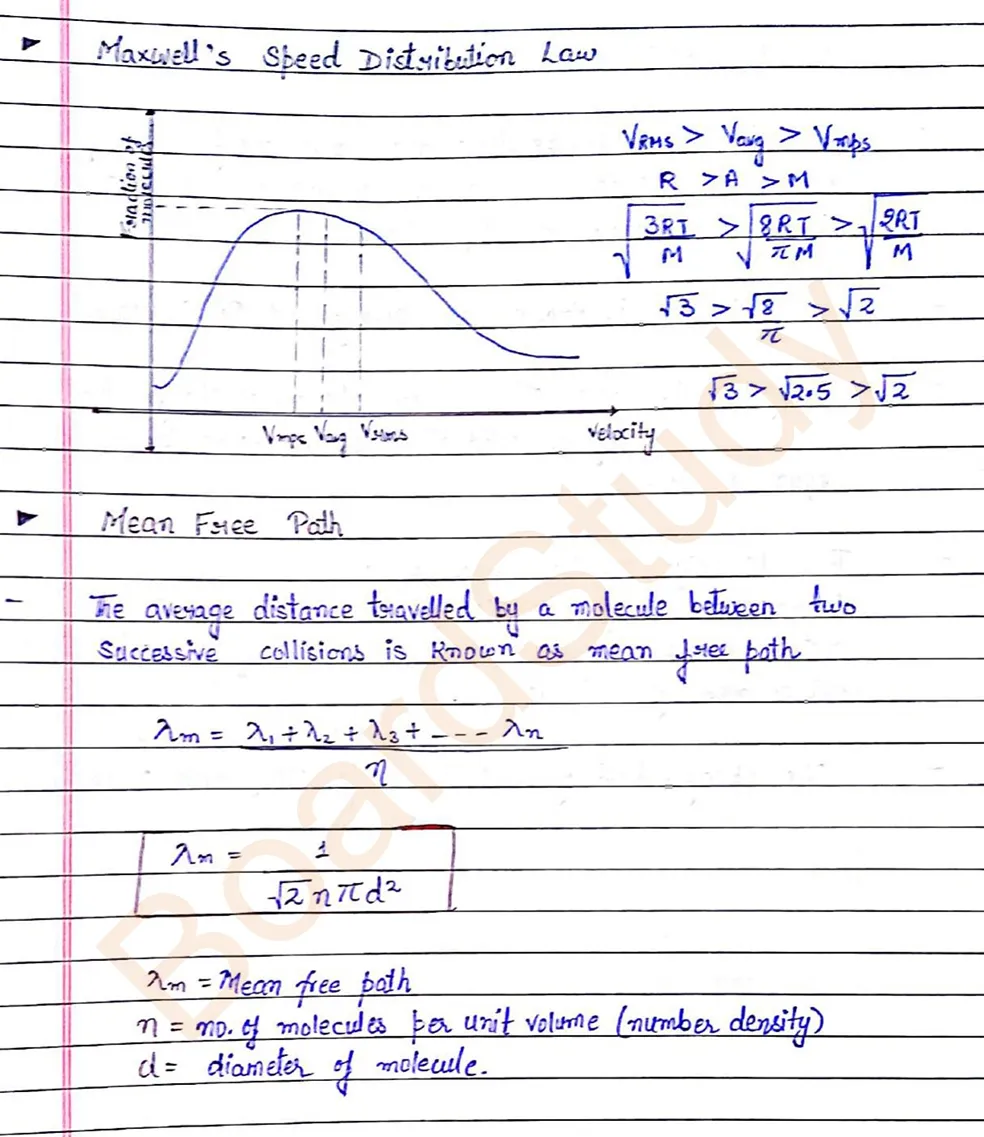 Maxwell's Speed Distribution Law
Fraction of molecules
VRMS > Vavg > Vmps
R > A > M
√3RT/M > √8RT/πM > √2RT/M
√3 > √8/π > √2
√3 > √2.5 > √2
Vmps Vavg Vrms
velocity
Mean Free Path
- The average distance travelled by a molecule between two
successive collisions is known as mean free path
λm = λ1 + λ2 + λ3 + --- λn
n
λm = 1
√2 n π d²
λm = Mean free path
n = no. of molecules per unit volume (number density)
d = diameter of molecule.
BoardStudy